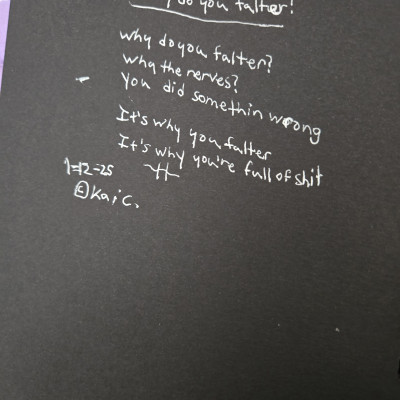 do you falter!
why do you falter?
why the nerves?
You did somethin wrong
It's why you falter
It's why you're full of shit
1-12-25
© Kai C.